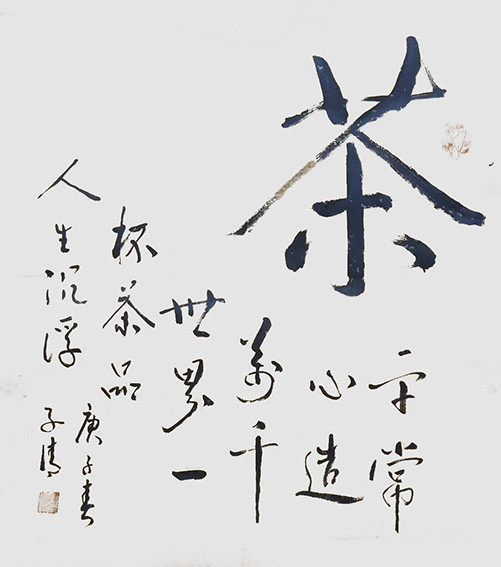 茶
平常
心造
万千
世界一
杯茶品
人生沉浮
庚子春
子清